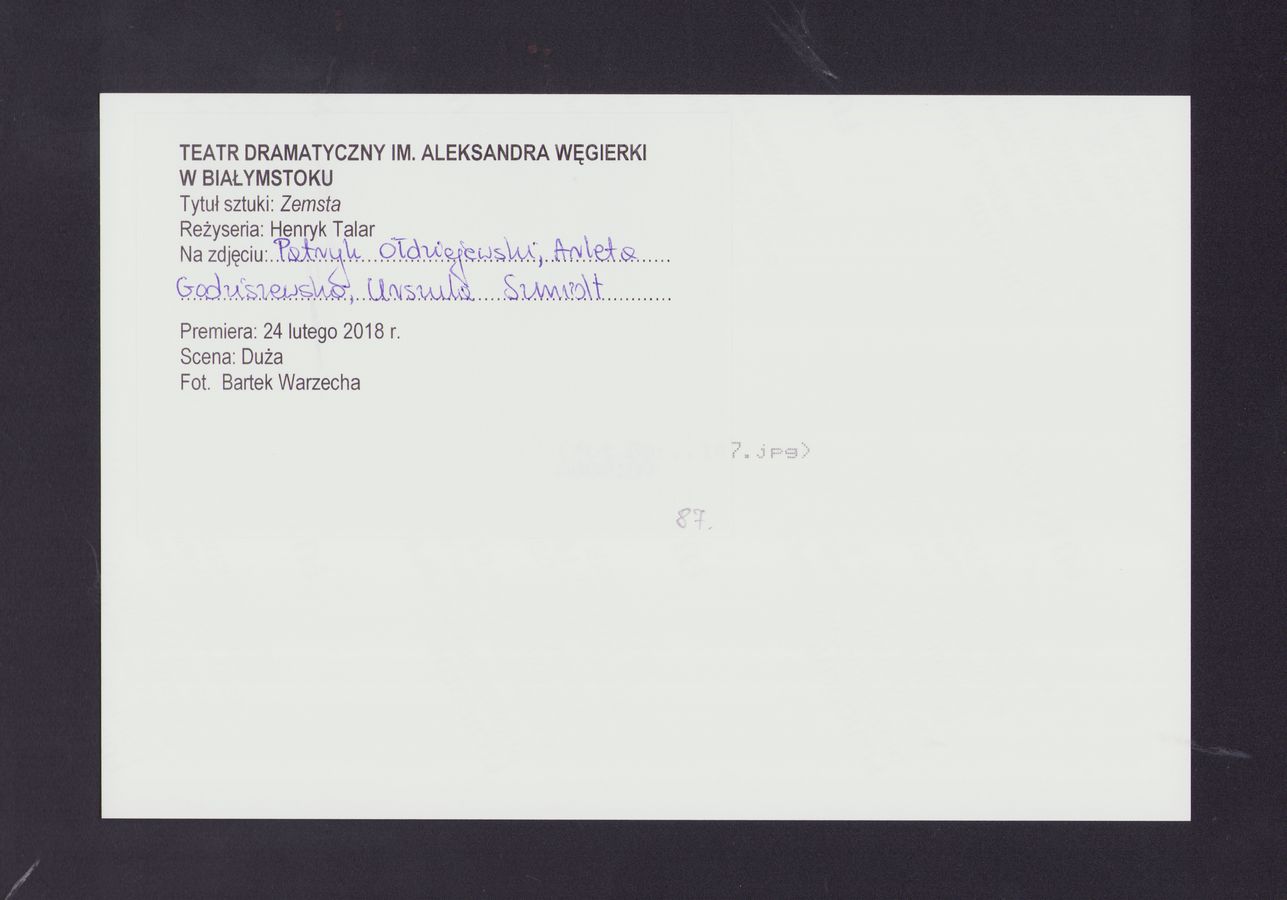 TEATR DRAMATYCZNY IM. ALEKSANDRA WĘGIERKI
W BIAŁYMSTOKU
Tytuł sztuki: Zemsta
Reżyseria: Henryk Talar
Na zdjęciu: Patryk Ołdziejewski, Arleta
Godziszewska, Urszula Szmidt
Premiera: 24 lutego 2018 r.
Scena: Duża
Fot. Bartek Warzecha
7.jpg)
87.